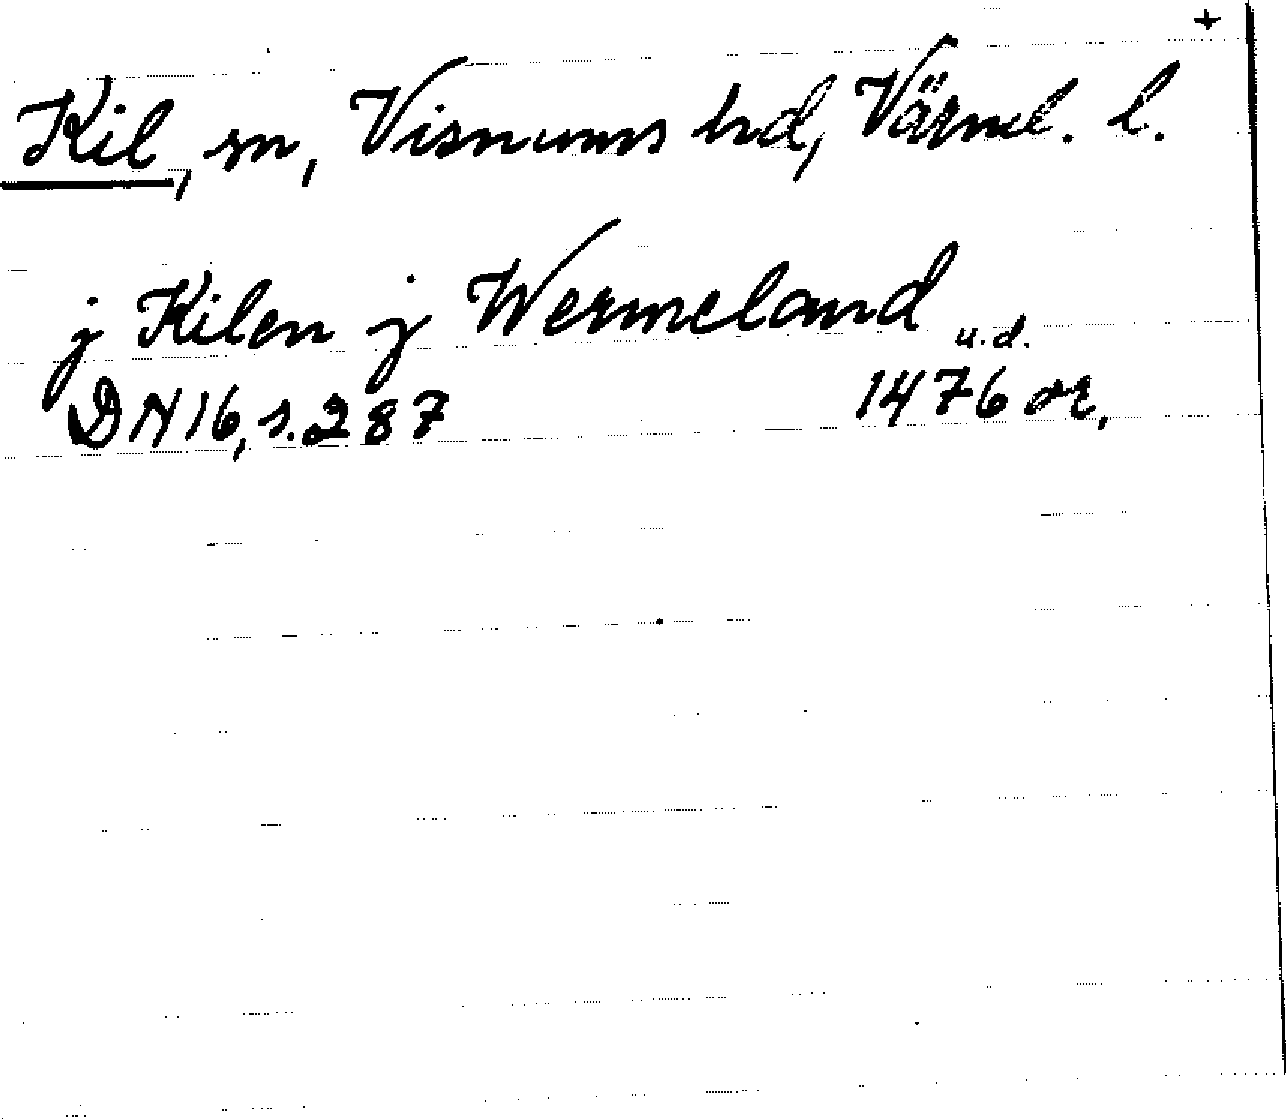 +
Kil, sn, Visnums hd, Värml. l.
j Kilen j Wermeland u.d.
DN 16, s. 287 1476 or.